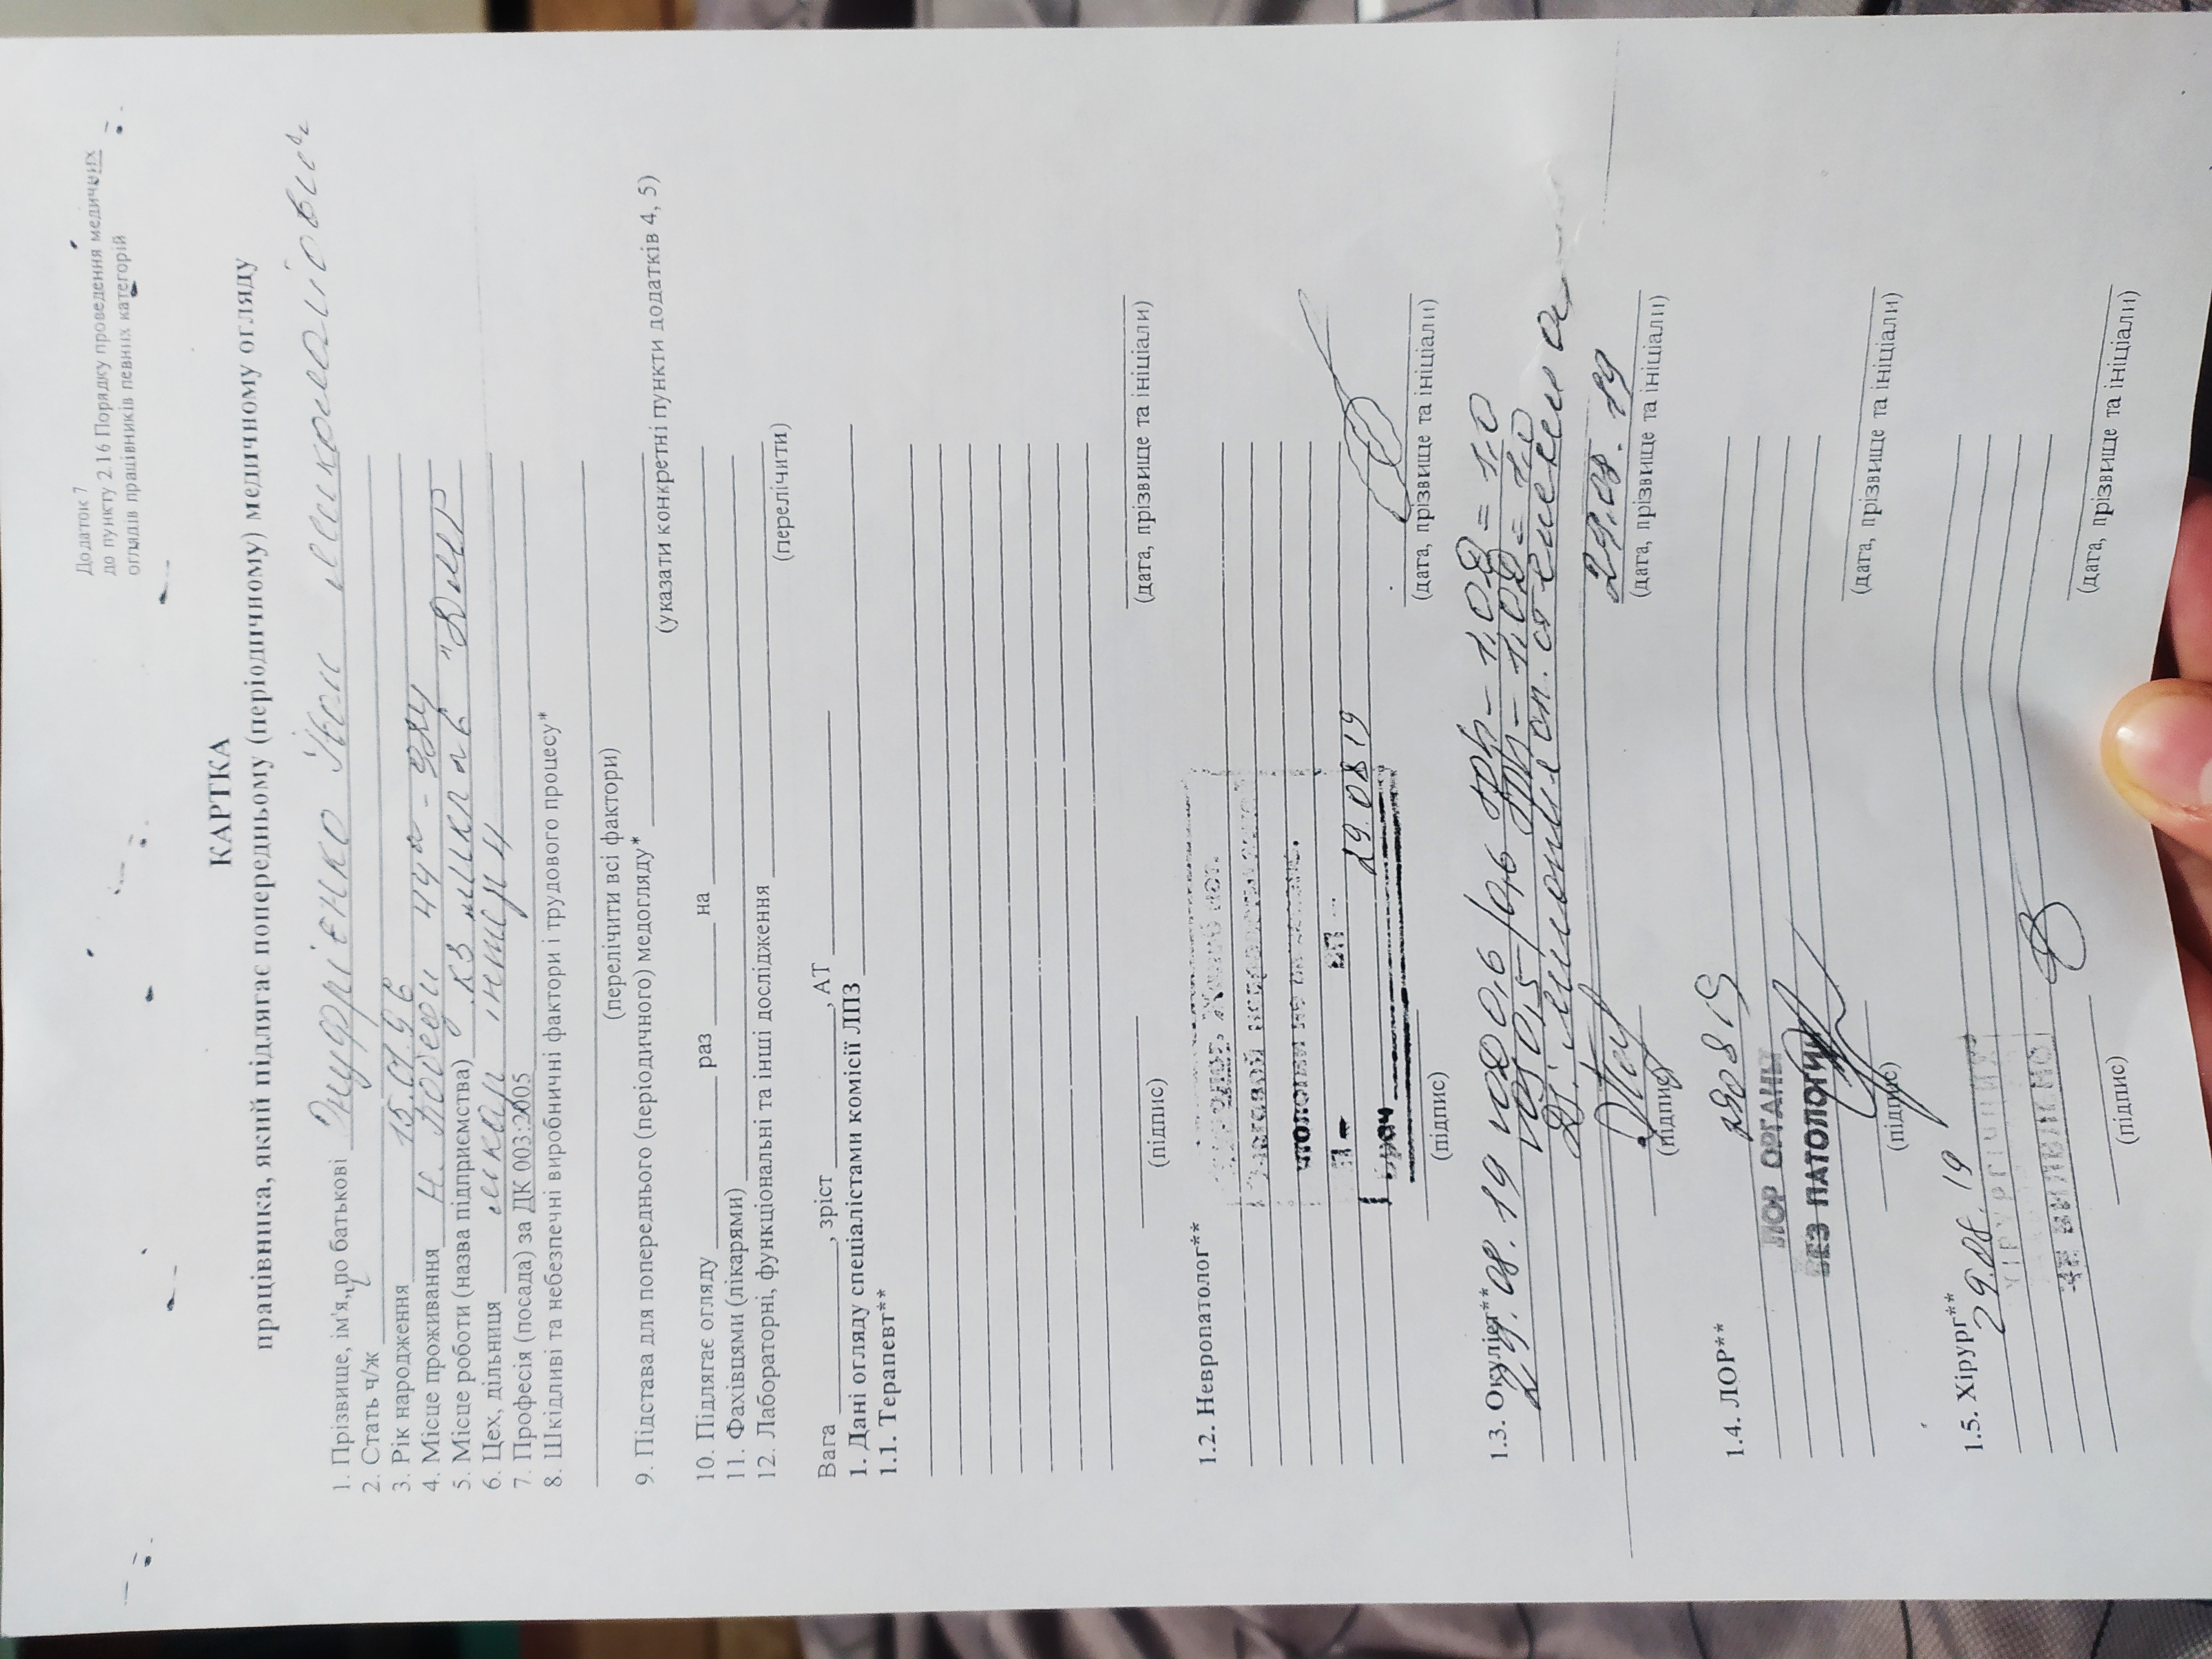 Додаток 7
до пункту 2.16 Порядку проведення медичних
оглядів працівників певних категорій
КАРТКА
працівника, який підлягає попередньому (періодичному) медичному огляду
1. Прізвище, ім'я, по батькові Онуфрієнко Миколайович
2. Стать ч/ж ч
3. Рік народження 15.01.96
4. Місце проживання Н. Победи 44а - 324
5. Місце роботи (назва підприємства) КЗ МКЛ №6 "ДМР
6. Цех, дільниця лікар інтерн
7. Професія (посада) за ДК 003:2005
8. Шкідливі та небезпечні виробничні фактори і трудового процесу*
(перелічити всі фактори)
9. Підстава для попереднього (періодичного) медогляду*
(указати конкретні пункти додатків 4, 5)
10. Підлягає огляду раз на
11. Фахівцями (лікарями)
12. Лабораторні, функціональні та інші дослідження
(перелічити)
Вага , зріст , АТ
1. Дані огляду спеціалістами комісії ЛПЗ
1.1. Терапевт**
(підпис) (дата, прізвище та ініціали)
1.2. Невропатолог**
Врач 29.08 19
(підпис) (дата, прізвище та ініціали)
1.3. Окуліст**
29.08.19 VOD 0,6 / 0,6 sph - 1,0D = 1,0
VOS 0,5 sph - 1,0D = 1,0
Ds: миопия сл. степени
29.08.19
(підпис) (дата, прізвище та ініціали)
1.4. ЛОР**
290819
ЛОР ОРГАНЫ
БЕЗ ПАТОЛОГИИ
(підпис) (дата, прізвище та ініціали)
1.5. Хірург**
29.08.19
ХІРУРГІЧНИХ
НЕ ВИЯВЛЕНО
(підпис) (дата, прізвище та ініціали)